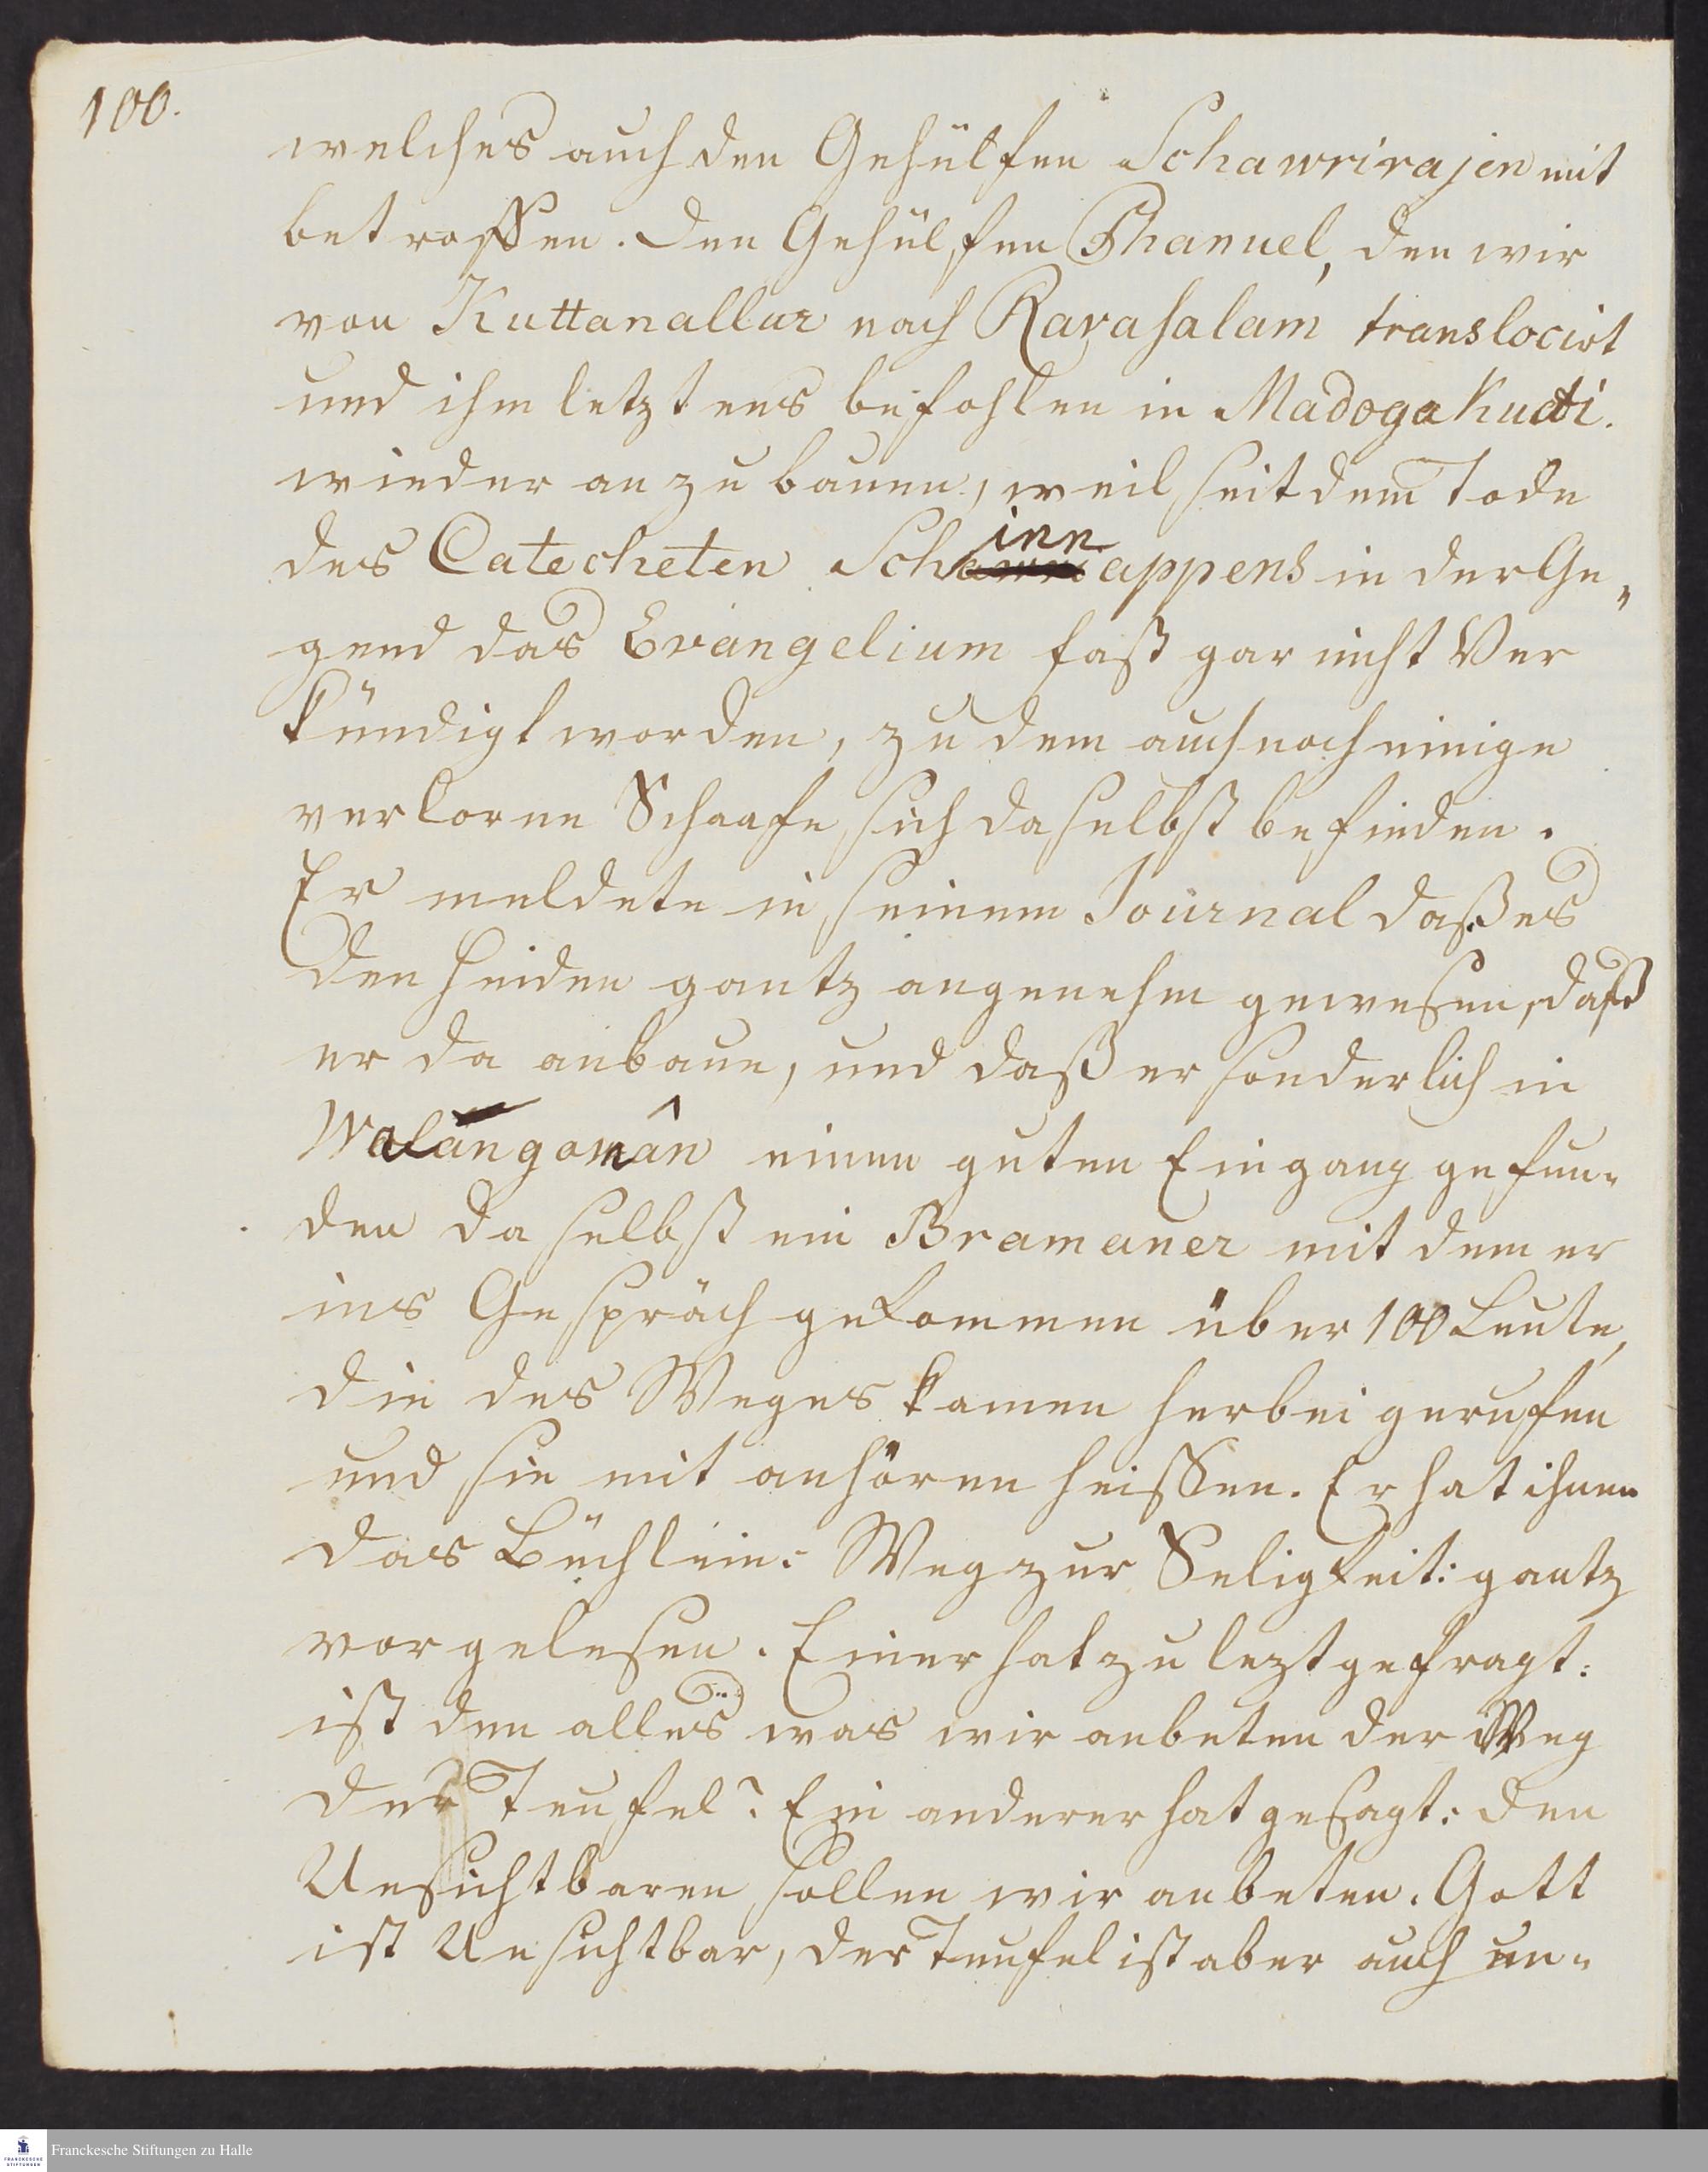 100.
welches auch den Gehülfen Schawrirajen mit
betroffen. Den Gehülfen Phanuel, den wir
von Kuttanallur nach Rarasalam translocirt
und ihm letztens befohlen in Madogakudi.
wieder anzubauen, weil seit dem Tode
des Catecheten Schinnappens in der Ge„
gend das Evangelium fast gar nicht Ver
kündigt worden, zu dem auch noch einige
verlorne Schaafe sich daselbst befinden.
Er meldete in seinem Journal daß es
den Heiden gantz angenehm gewesen, daß
er da anbaue, und daß er sonderlich in
Walangomân einen guten Eingang gefun„
den da selbst ein Bramaner mit dem er
ins Gespräch gekommen über 100 Leute,
die des Weges kamen herbei gerufen
und sie mit anhören heissen. Er hat ihnen
das Büchlein: Weg zur Seligkeit: gantz
vorgelesen. Einer hat zu lezt gefragt:
ist den alles was wir anbeten der Weg
der Teufel? Ein anderer hat gesagt: den
Unsichtbaren sollen wir anbeten. Gott
ist Unsichtbar, der Teufel ist aber auch un„
Franckesche Stiftungen zu Halle
FRANCKESCHE
STIFTUNGEN